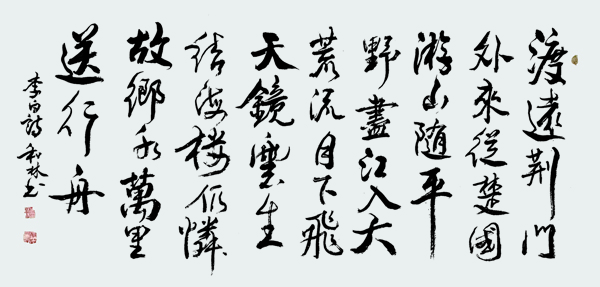 渡遠荆門
外來從楚國
游山随平
野盡江入大
荒流月下飛
天鏡雲生
結海樓仍憐
故鄉水萬里
送行舟
李白詩和林书